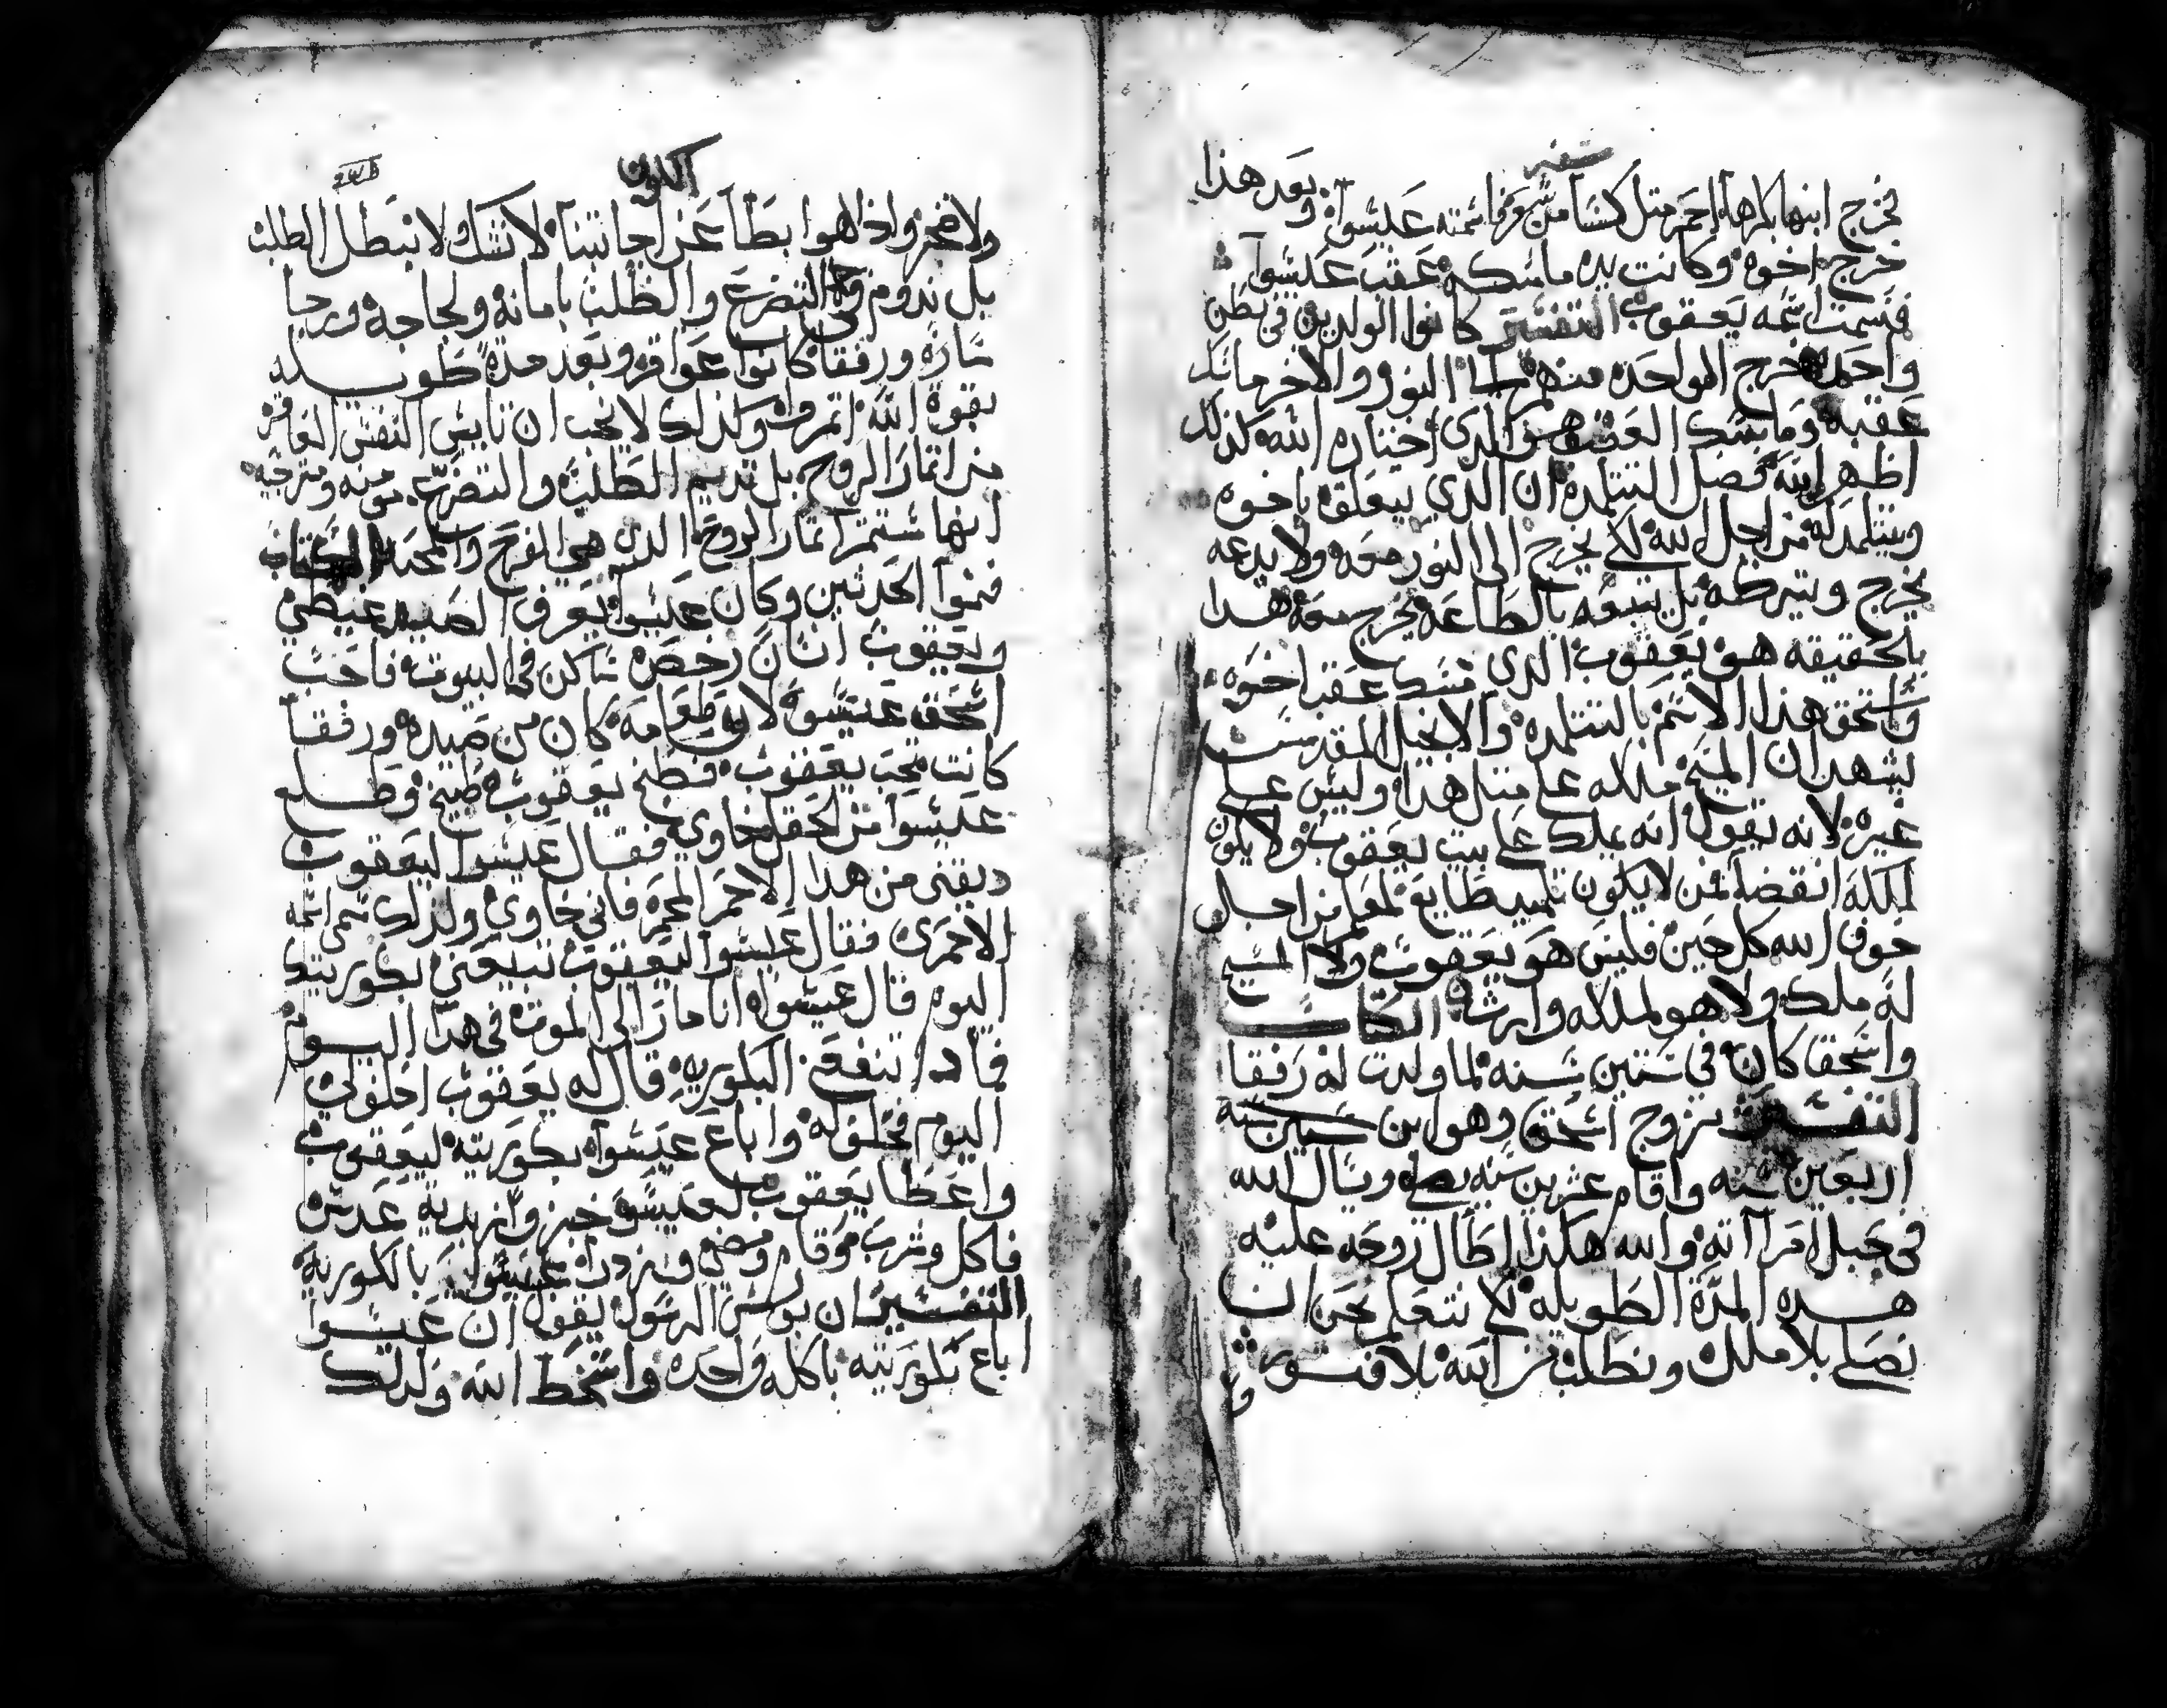 سفر
فخرج ابنها بكرها احمر مثل كسا من شعر فاسمته عيسوا وبعد هذا
خرج اخوه وكانت يده ماسكه عقب عيسوا
فسمت اسمه يعقوب التفسير كانوا الولدين في بطن
واحده خرج الواحد منهم الي النور والاخر ماسك
عقبه وماسك العقب هو الدي اختاره الله كذلك
اظهر الله فضل التتلمده ان الدي يتعلق باخوه
ويتتلمد له من اجل الله لكي يخرج الى النور معه ولا يدعه
يخرج ويتركه بل يتبعه بالطاعه يخرج معه هدا
بالحقيقه هو يعقوب الدي مسك عقب اخوه
واستحق هذا الاسم بالتتلمده والانجيل المقدس
يشهد ان المسيح ملكه علي متل هدا وليس علي
غيره لانه يقول انه يملك علي بيت يعقوب ولا يكون
لملكه انقضا لمن لا يكون تلميد طايع لمعلم من اجل
خوف الله كل حين فليس هو يعقوب ولا المسيح
له ملك ولا هو لملكه وارث الكتاب
واسحق كان في ستين سنه لما ولدت له رفقا
التفسير تزوج اسحق وهو ابن سنه
اربعين سنه واقام عشرين سنه يصلي ويسال الله
في حبل امراته والله هكذا اطال روحه عليه
هده المده الطويله لكي نتعلم نحن ان
نصلي بلا ملل ونطلب من الله بلا فتور
ولا
الكون
ولا ضجر واذا هوا بطا عن اجابتنا لا نشك ولا نبطل الطلب
بل ندوم في التضرع والطلب بامانه ولجاجه ورجا
ساره ورفقا كانوا عواقر وبعد مدة طويله
بقوة الله اتمروا ولذلك لا يجب ان تايس النفس العاقر
من اتمار الروح بل تديم الطلبه والتضرع مومنه ومترجيه
انها ستتمر اتمار الروح الدي هي الفرح والمحبه الكتاب
فنموا الحدثين وكان عيسوا يعرف الصيد غيطي
ويعقوب انسان رحصه ساكن في البيوت فاحب
اسحق عيسوا لان طعامه كان من صيده ورفقا
كانت تحب يعقوب فطبخ يعقوب طبيخ وطلع
عيسوا من الحقل خاوي فقال عيسوا ليعقوب
ديقني من هدا الاحمر المجمر فاني خاوي ولذلك سمي اسمه
الاحمري فقال عيسوا ليعقوب تبيعني بكوريتك
اليوم قال عيسوا انا مار الى الموت في هذا اليوم
فمادا تنفعني البكوريه قال له يعقوب احلف لي
اليوم فحلف له واباع عيسوا بكوريته ليعقوب
واعطا يعقوب لعيسو خبز وازبدية عدس
فاكل وشرب وقام ومضي وازدرا عيسوا بالبكوريه
التفسير ان بولس الرسول يقول ان عيسوا
اباع بكوريته باكله واحده واسخط الله ولدلك